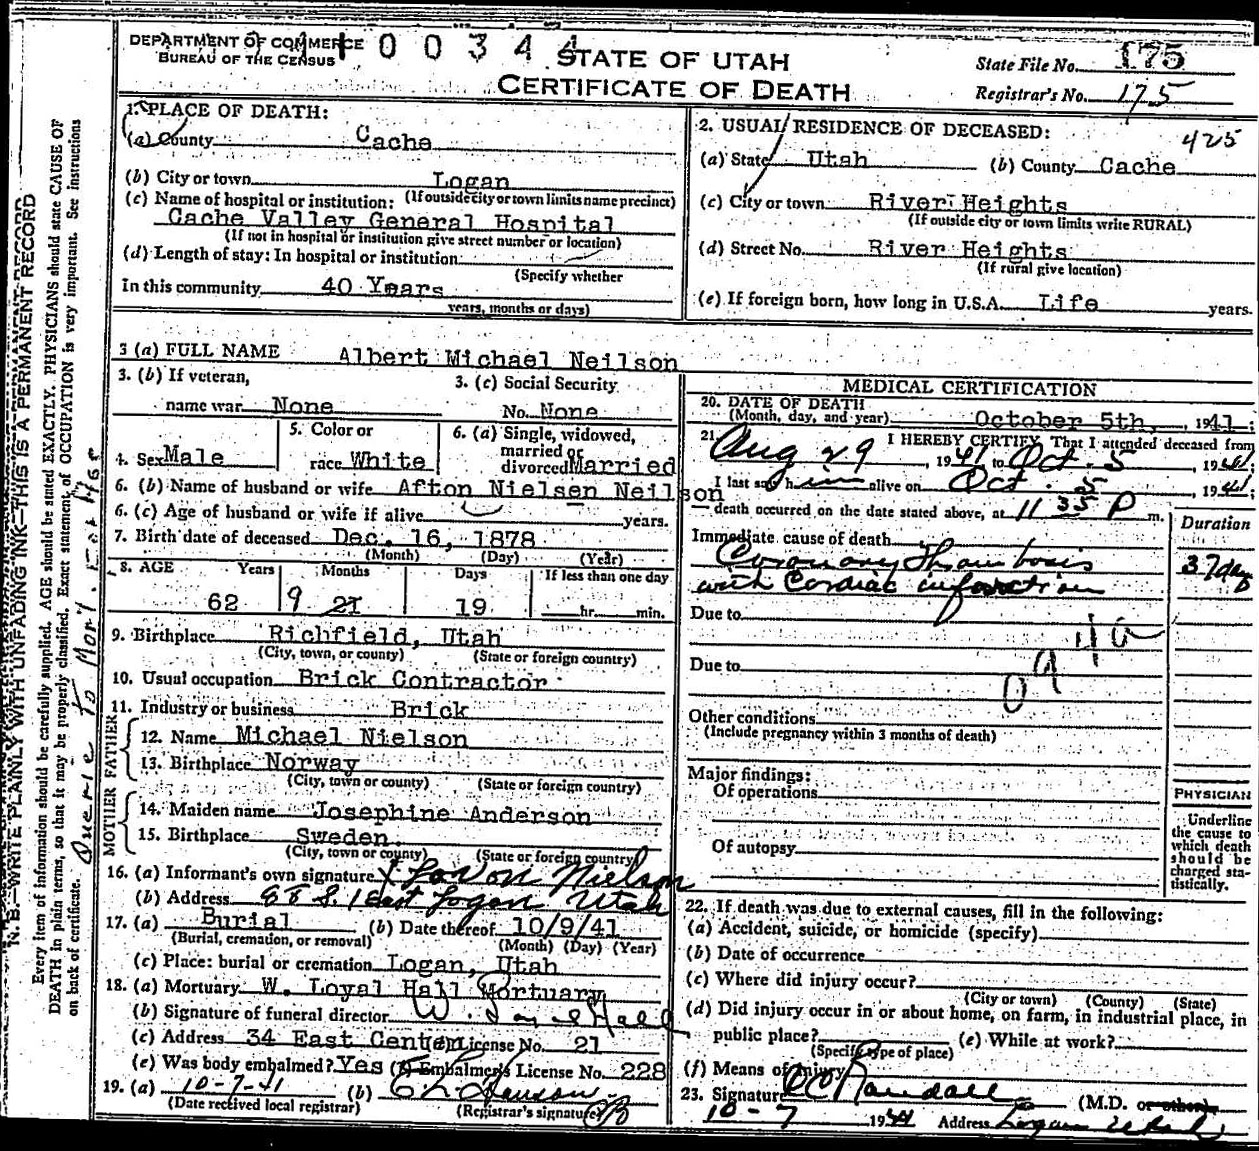 DEPARTMENT OF COMMERCE
BUREAU OF THE CENSUS
1 0 0 3 4 4
STATE OF UTAH
CERTIFICATE OF DEATH
State File No. 175
Registrar's No. 175
1. PLACE OF DEATH:
(a) County Cache
(b) City or town Logan
(If outside city or town limits name precinct)
(c) Name of hospital or institution:
Cache Valley General Hospital
(If not in hospital or institution give street number or location)
(d) Length of stay: In hospital or institution
(Specify whether
In this community 40 Years
years, months or days)
2. USUAL RESIDENCE OF DECEASED:
425
(a) State Utah (b) County Cache
(c) City or town River Heights
(If outside city or town limits write RURAL)
(d) Street No. River Heights
(If rural give location)
(e) If foreign born, how long in U.S.A. Life years.
3 (a) FULL NAME Albert Michael Neilson
3. (b) If veteran,
name war None
3. (c) Social Security
No. None
4. Sex Male
5. Color or
race White
6. (a) Single, widowed,
married or
divorced Married
6. (b) Name of husband or wife Afton Nielsen Neilson
6. (c) Age of husband or wife if alive years.
7. Birth date of deceased Dec. 16, 1878
(Month) (Day) (Year)
8. AGE Years Months Days If less than one day
62 9 21 19 hr. min.
9. Birthplace Richfield, Utah
(City, town, or county) (State or foreign country)
10. Usual occupation Brick Contractor
11. Industry or business Brick
FATHER
12. Name Michael Nielson
13. Birthplace Norway
(City, town or county) (State or foreign country)
MOTHER
14. Maiden name Josephine Anderson
15. Birthplace Sweden.
(City, town or county) (State or foreign country)
16. (a) Informant's own signature X LaVon Nielson
(b) Address S. 1 East Logan Utah
17. (a) Burial (b) Date thereof 10/9/41
(Burial, cremation, or removal) (Month) (Day) (Year)
(c) Place: burial or cremation Logan, Utah
18. (a) Mortuary W. Loyal Hall Mortuary
(b) Signature of funeral director W. Loyal Hall
(c) Address 34 East Center License No. 21
(e) Was body embalmed? Yes (f) Embalmer's License No. 228
19. (a) 10-7-41 (b)
(Date received local registrar) (Registrar's signature)
MEDICAL CERTIFICATION
20. DATE OF DEATH
(Month, day, and year) October 5th, 1941;
21. I HEREBY CERTIFY, That I attended deceased from
Aug 29, 1941 to Oct. 5, 1941;
I last saw him alive on Oct. 5, 1941;
— death occurred on the date stated above, at 11 35 P m.
Duration
Immediate cause of death
Coronary Thrombosis
with Cardiac infarction
37 days
Due to
Due to
Other conditions
(Include pregnancy within 3 months of death)
Major findings:
Of operations
Of autopsy
PHYSICIAN
Underline
the cause to
which death
should be
charged sta-
tistically.
22. If death was due to external causes, fill in the following:
(a) Accident, suicide, or homicide (specify)
(b) Date of occurrence
(c) Where did injury occur?
(City or town) (County) (State)
(d) Did injury occur in or about home, on farm, in industrial place, in
public place? (e) While at work?
(Specify type of place)
(f) Means of injury
23. Signature Randall (M.D. or other)
10-7 1941 Address Logan Utah
N. B.—WRITE PLAINLY WITH UNFADING INK—THIS IS A PERMANENT RECORD
Every item of information should be carefully supplied. AGE should be stated EXACTLY. PHYSICIANS should state CAUSE OF
DEATH in plain terms, so that it may be properly classified. Exact statement of OCCUPATION is very important. See instructions
on back of certificate.